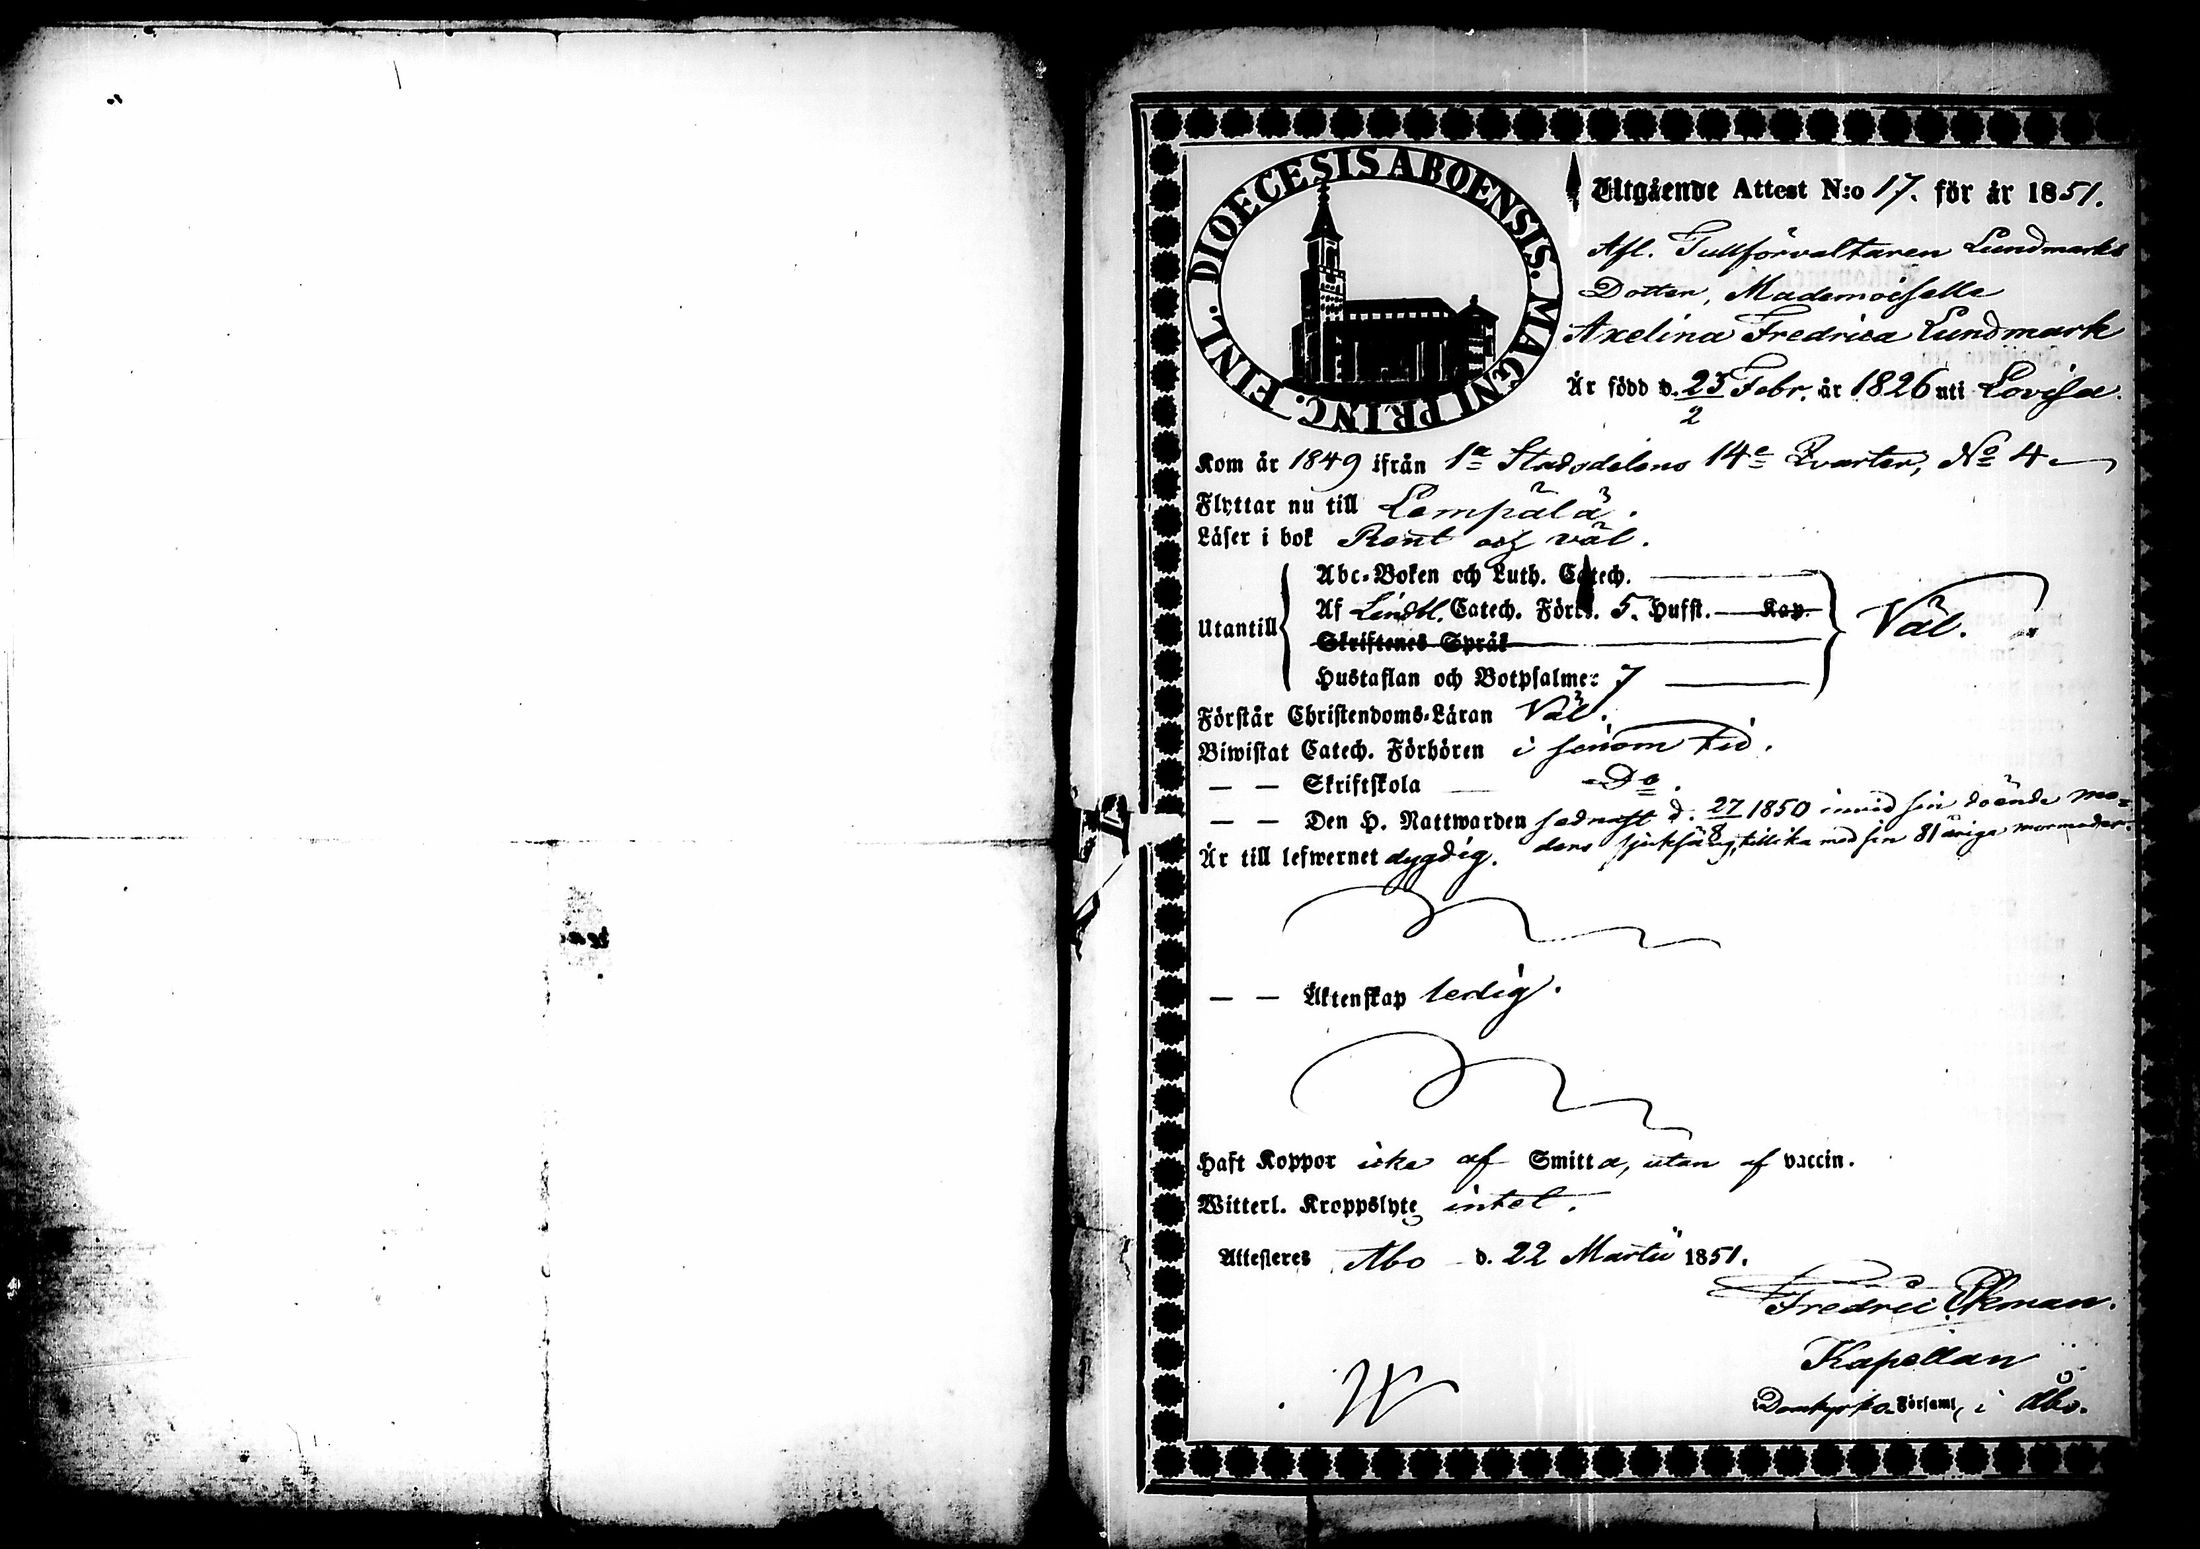 DIOECESIS ABOENSIS. MAGNI PRINC. FINL.
Utgående Attest N:o 17. för år 1851.
Afl. Tullförvaltaren Lundmarks
Dotter, Mademoiselle
Axelina Fredrica Lundmark
Är född d. 23/2 Febr. år 1826 uti Lovisa.
Kom år 1849 ifrån 1a Stadsdelens 14e Qvarter, No 4
Flyttar nu till Lempälä.
Läser i bok Rent och väl.
Abc-Boken och Luth. Catech.
Af Lindbl. Catech. Förkl. 5. Hufst. Kap.
Utantill Väl.
Skriftenes Språk
Hustaflan och Botpsalmer 7
Förstår Christendoms-Läran Väl.
Biwistat Catech. Förhören i sinom tid.
— — Skriftskola Do.
— — Den H. Nattwarden sednast d. 27/8 1850 invid sin döende mo=
ders sjuksäng, tillika med sin 81 åriga mormoder.
Är till lefwernet dygdig.
— — Äktenskap ledig.
Haft Koppor icke af Smitta, utan af vaccin.
Witterl. Kroppslyte intet.
Attesteres Åbo d. 22 Martii 1851.
Fredric Ekman.
Kapellan
Domkyrko Församl. i Åbo.